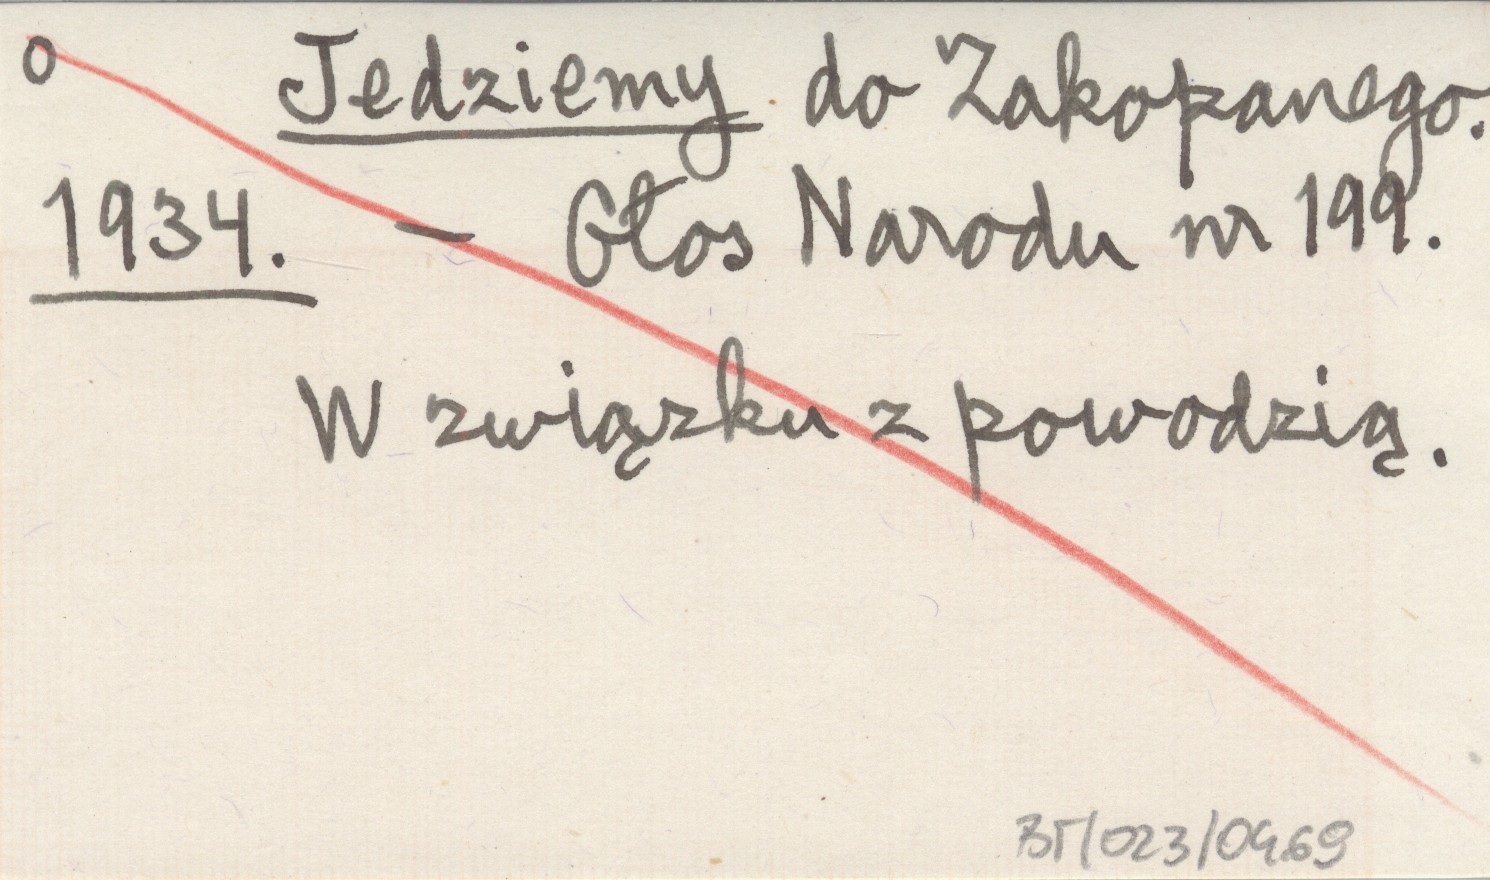 o Jedziemy do Zakopanego.
1934. — Głos Narodu nr 199.
W związku z powodzią.
BT/023/0469